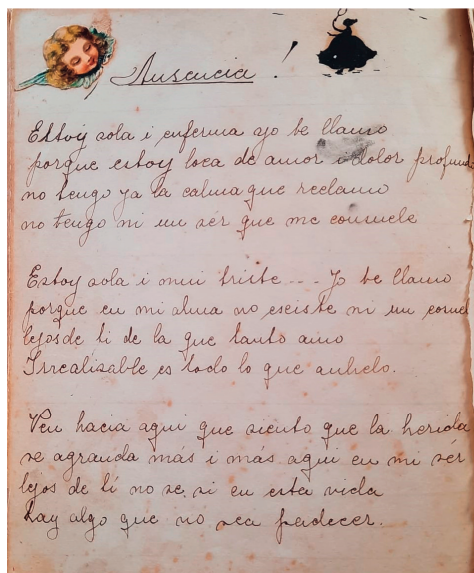 Ausencia !
Estoy sola i enferma yo te llamo
porque estoy loca de amor i dolor
no tengo ya la calma que reclamo
no tengo ni un sér que me consuele
Estoy sola i mui triste --- Yo te llamo
porque en mi alma no eseiste ni un
lejos de ti de la que tanto amo
Irrealisable es todo lo que anhelo.
Ven hacia aqui que siento que la herida
se agranda más i más aqui en mi sér
lejos de tí no se si en esta vida
hay algo que no sea padecer.